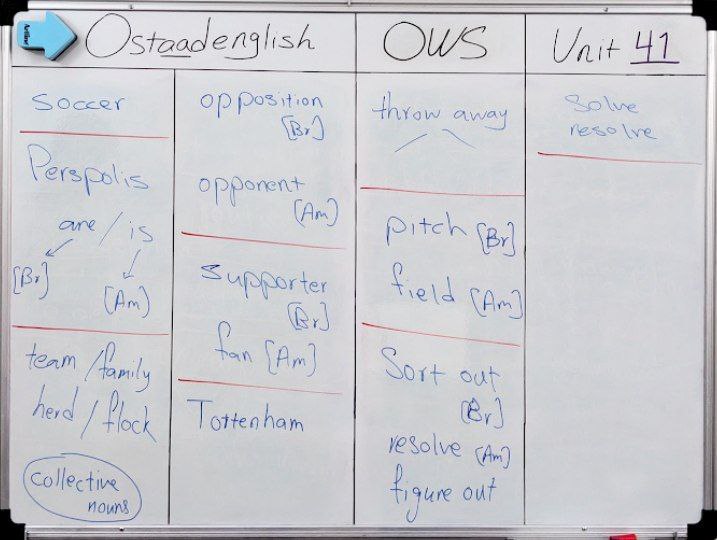 Artline
Ostaadenglish
OWS
Unit 41
soccer
Perspolis
are / is
[Br]
[Am]
team / family
herd / flock
collective
nouns
opposition
[Br]
opponent
[Am]
supporter
[Br]
fan [Am]
Tottenham
throw away
pitch [Br]
field [Am]
Sort out
[Br]
resolve [Am]
figure out
Solve
resolve